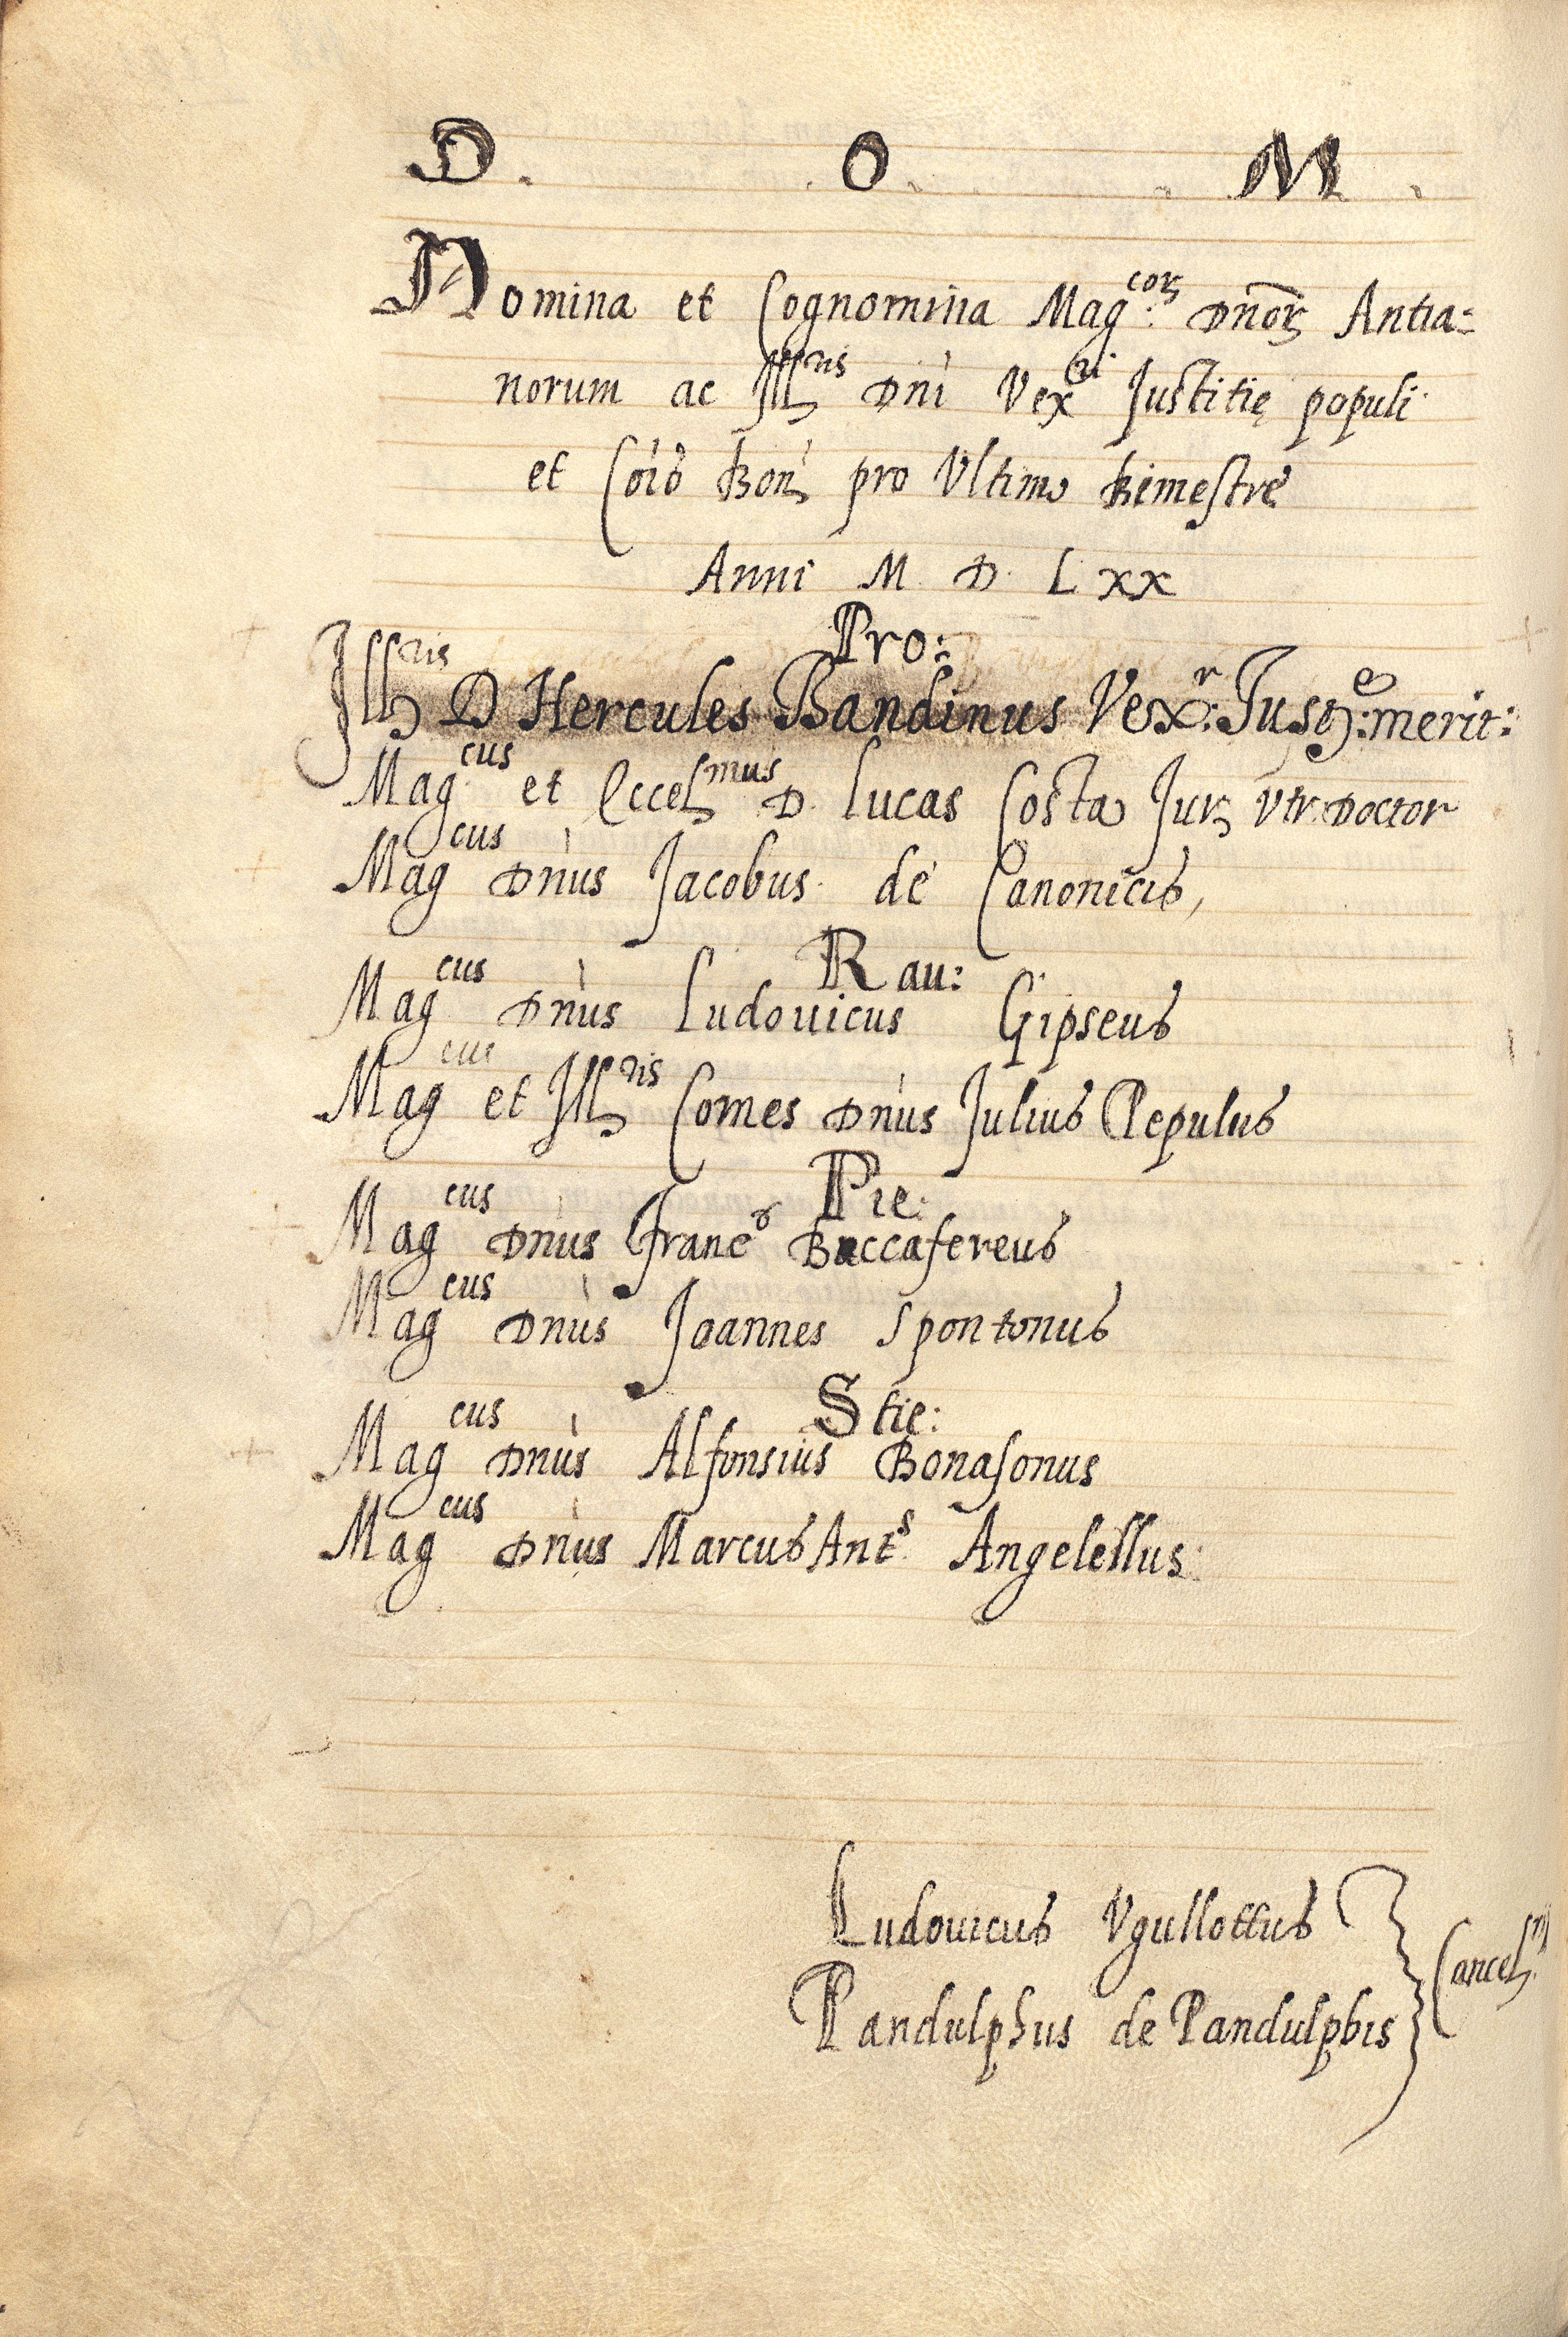 D. .O. .M.
Nomina et Cognomina Mag:coꝝ Dn̄oꝝ Antia=
norum ac Ill.ris Dni Vexri Justitię populi
et Cōis Bon. pro Ultimo bimestre
Anni M. D. L xx
Pro:
Ill.ris D Hercules Bandinus Vex:r Just:e merit:
Mag.cus et Eccel.mus D. Lucas Costa Jur. Utr. Doctor
Mag.cus Dnus Jacobus de Canonicis,
Rau:
Mag.cus Dnus Ludouicus Gipseus
Mag.cus et Ill.ris Comes Dnus Julius Pepulus
Pie:
Mag.cus Dnus Franc.s Buccafereus
Mag.cus Dnus Joannes Spontonus
Stie:
Mag.cus Dnus Alfonsius Bonasonus
Mag.cus Dnus Marcus Ant.s Angelellus:
Ludouicus Vgullottus
Cancel.rij
Pandulphus de Pandulphis